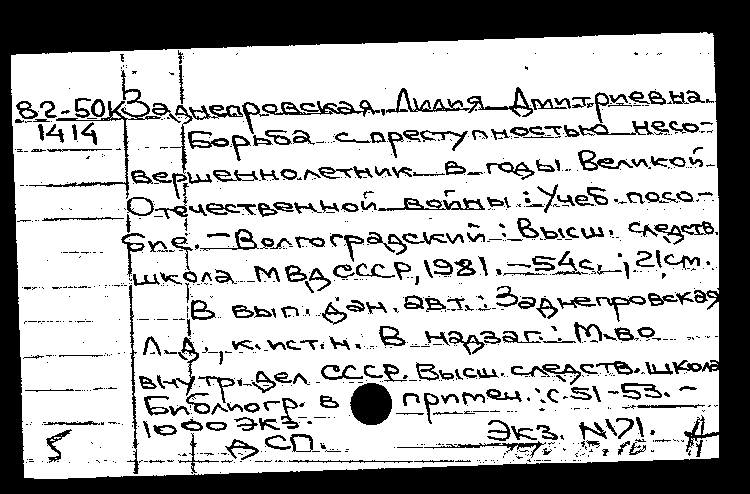 82-50К Заднепровская, Лилия Дмитриевна
1414 Борьба с преступностью несо-
вершеннолетник в годы Великой
Отечественной войны : Учеб. посо-
бие. — Волгоградский : Высш. следств.
школа МВД СССР, 1981. — 54с. ; 21см.
В вып. дан. авт.: Заднепровская
Л.Д., к.ист.н. В надзаг.: М-во
внутр. дел СССР. Высш. следств. школа
Библиогр. в примеч.: с.51-53. —
1000 экз.
5 ДСП. Экз. N171. А